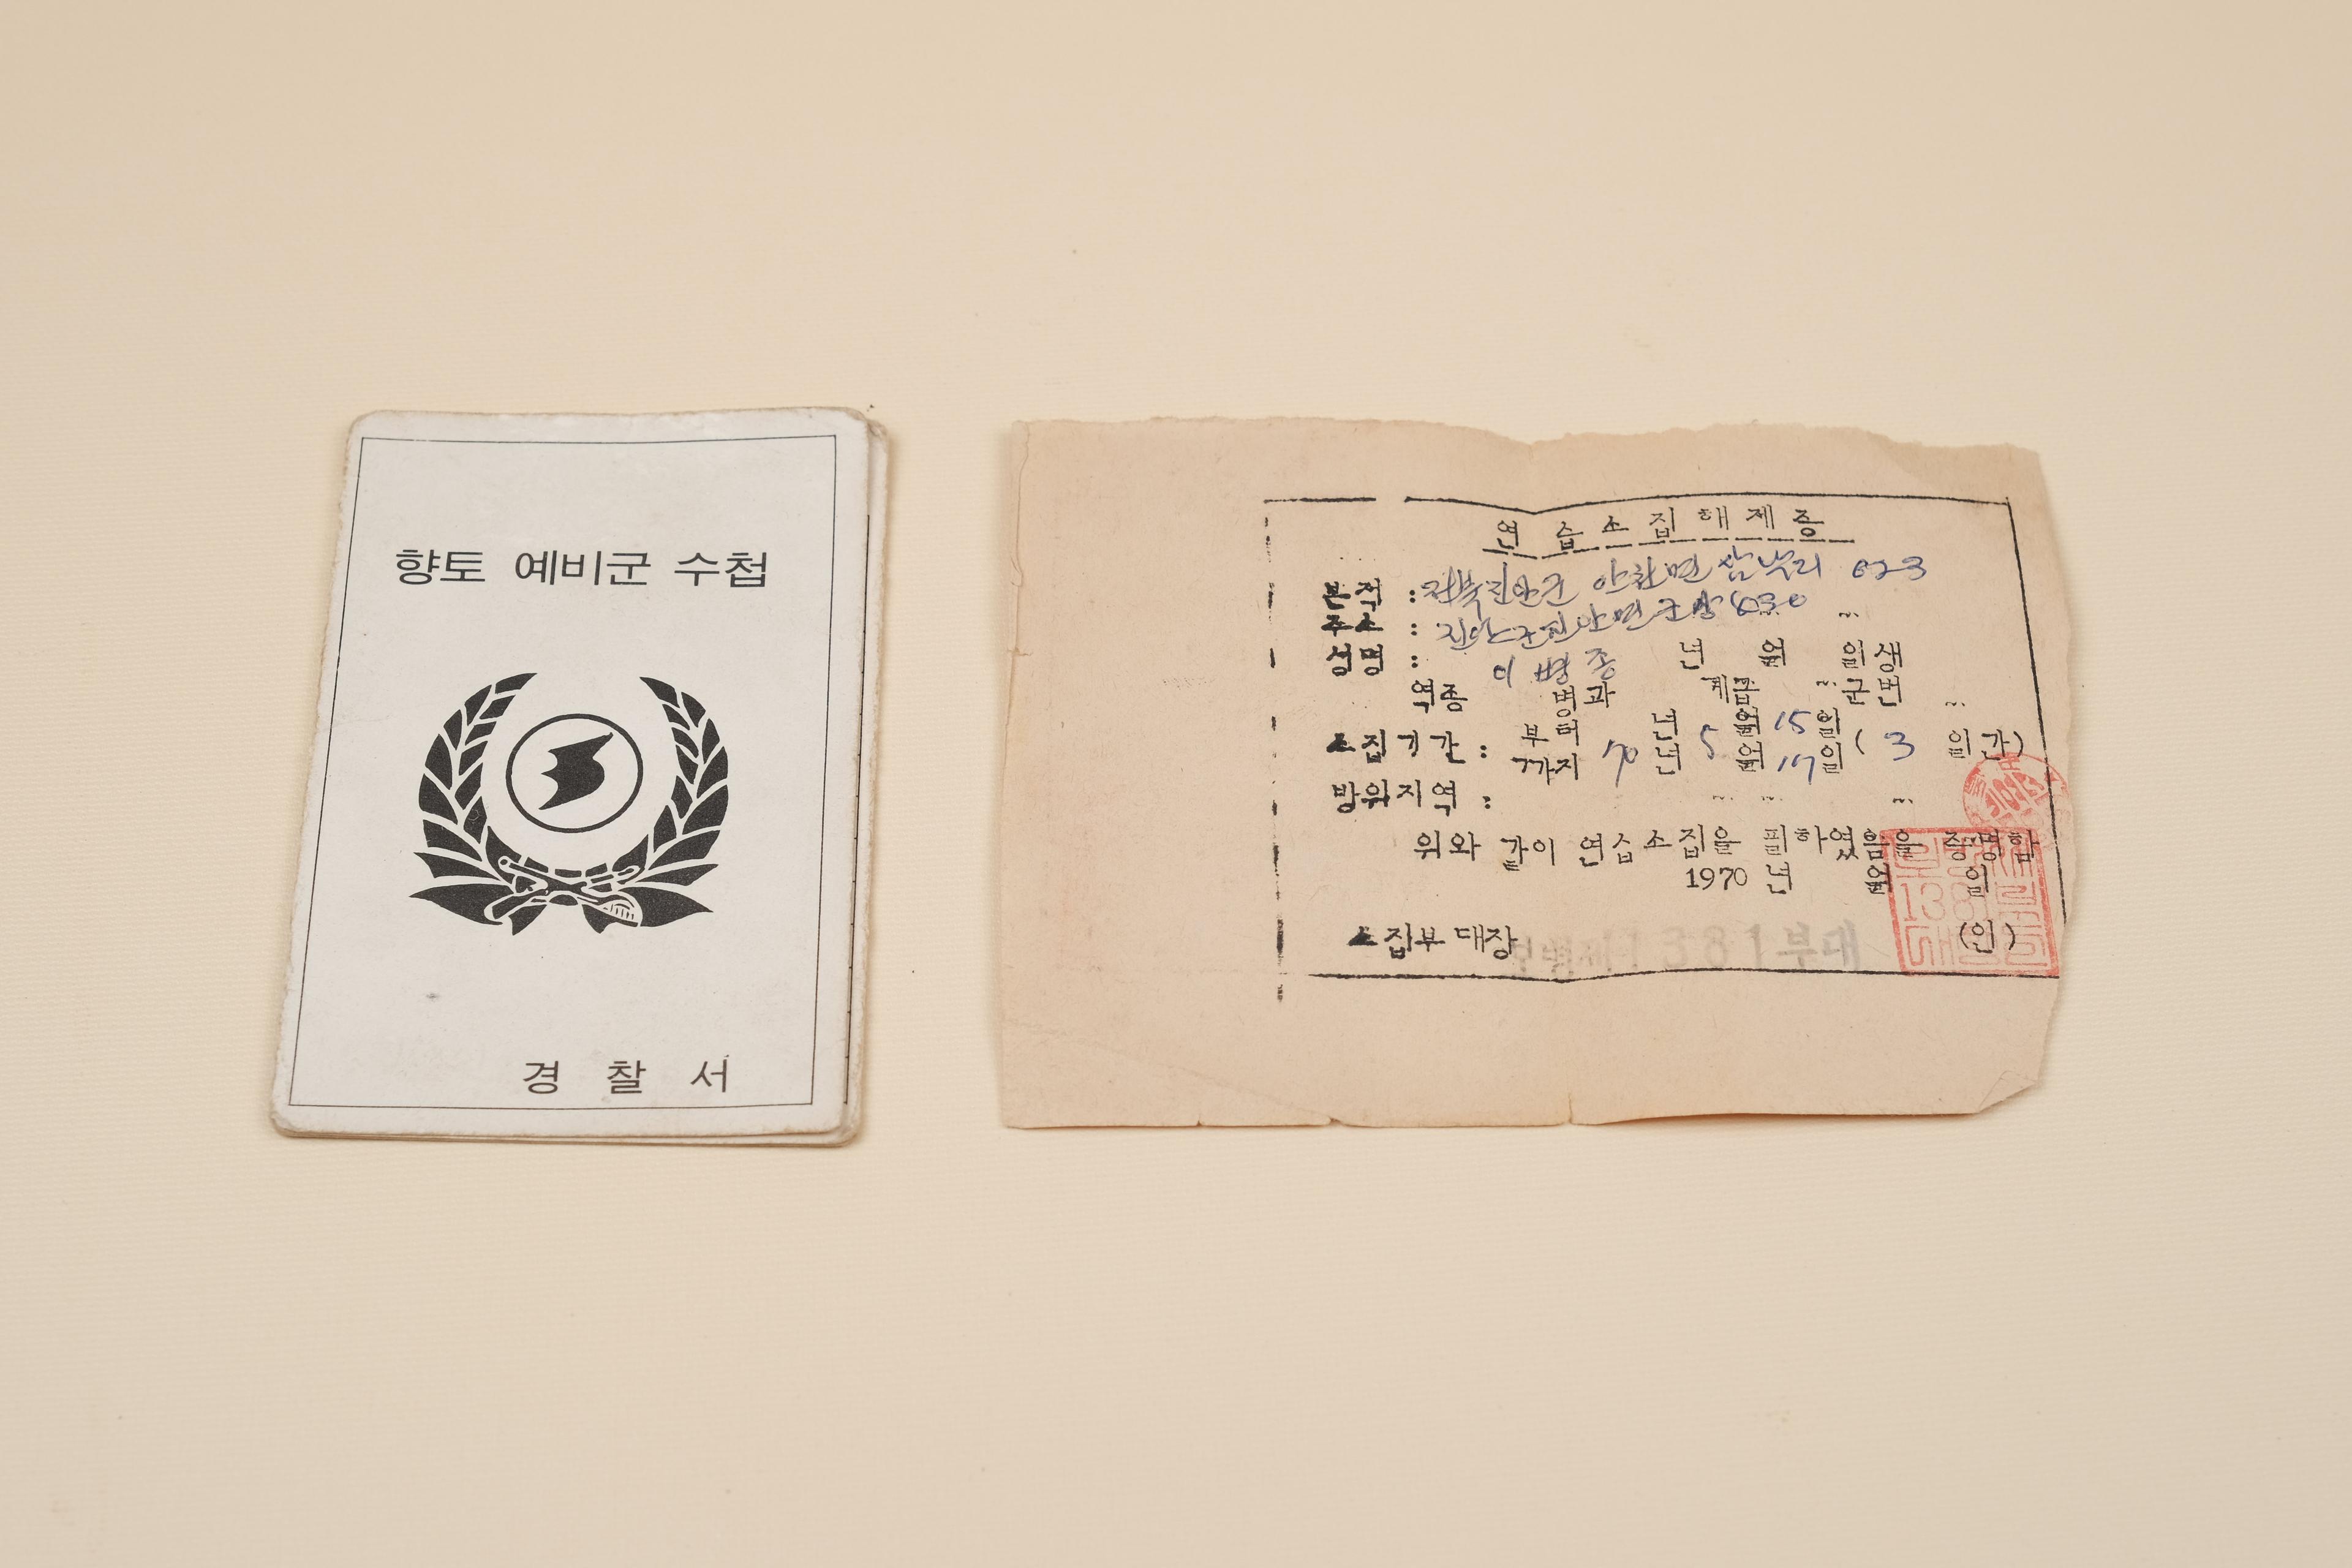 향토 예비군 수첩
경 찰 서
연 습 소 집 해 제 증
본적 : 전북 진안군 안천면 삼락리 623
주소 : 진안군 진안면 군상 630
성명 : 이병종 년 월 일생
역종 병과 계급 군번
소집기간 : 부터 년 5월 15일
까지 70년 5월 17일 ( 3 일간)
방위지역 :
위와 같이 연습소집을 필하였음을 증명함
1970 년 월 일
소집부대장 1381부대 (인)